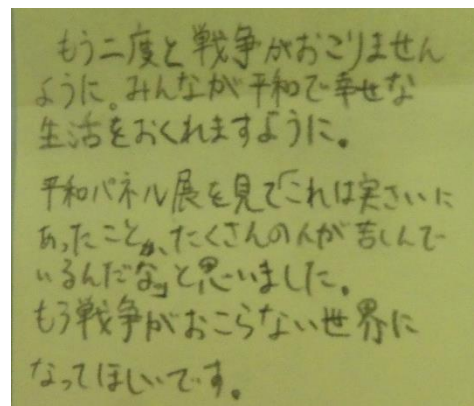 もう二度と戦争がおこりません
ように。みんなが平和で幸せな
生活をおくれますように。
平和パネル展を見て「これは実さいに
あったことか、たくさんの人が苦しんで
いるんだな」と思いました。
もう戦争がおこらない世界に
なってほしいです。